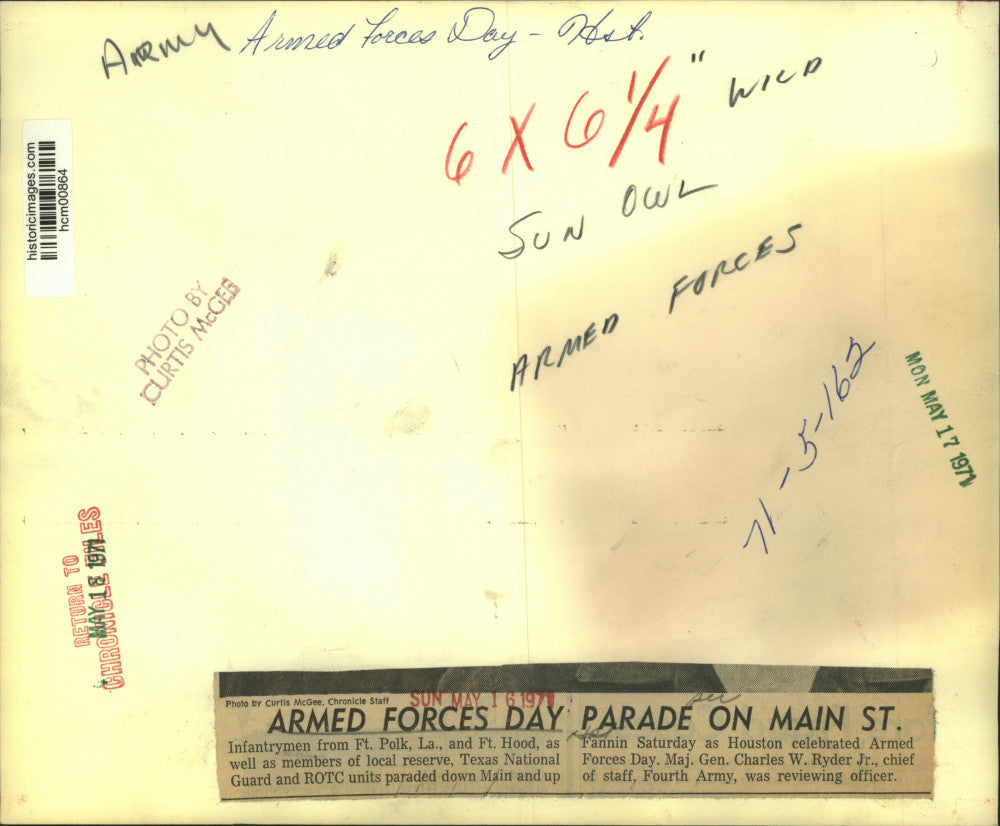 Army Armed Forces Day - Hst.
6 X 6 1/4" WILD
SUN OWL
ARMED FORCES
historicimages.com
hcm00864
PHOTO BY
CURTIS McGEE
71-5-162
MON MAY 17 1971
RETURN TO
MAY 18 1971
CHRONICLE FILES
Photo by Curtis McGee, Chronicle Staff
SUN MAY 16 1971
ARMED FORCES DAY PARADE ON MAIN ST.
Infantrymen from Ft. Polk, La., and Ft. Hood, as
well as members of local reserve, Texas National
Guard and ROTC units paraded down Main and up
Fannin Saturday as Houston celebrated Armed
Forces Day. Maj. Gen. Charles W. Ryder Jr., chief
of staff, Fourth Army, was reviewing officer.